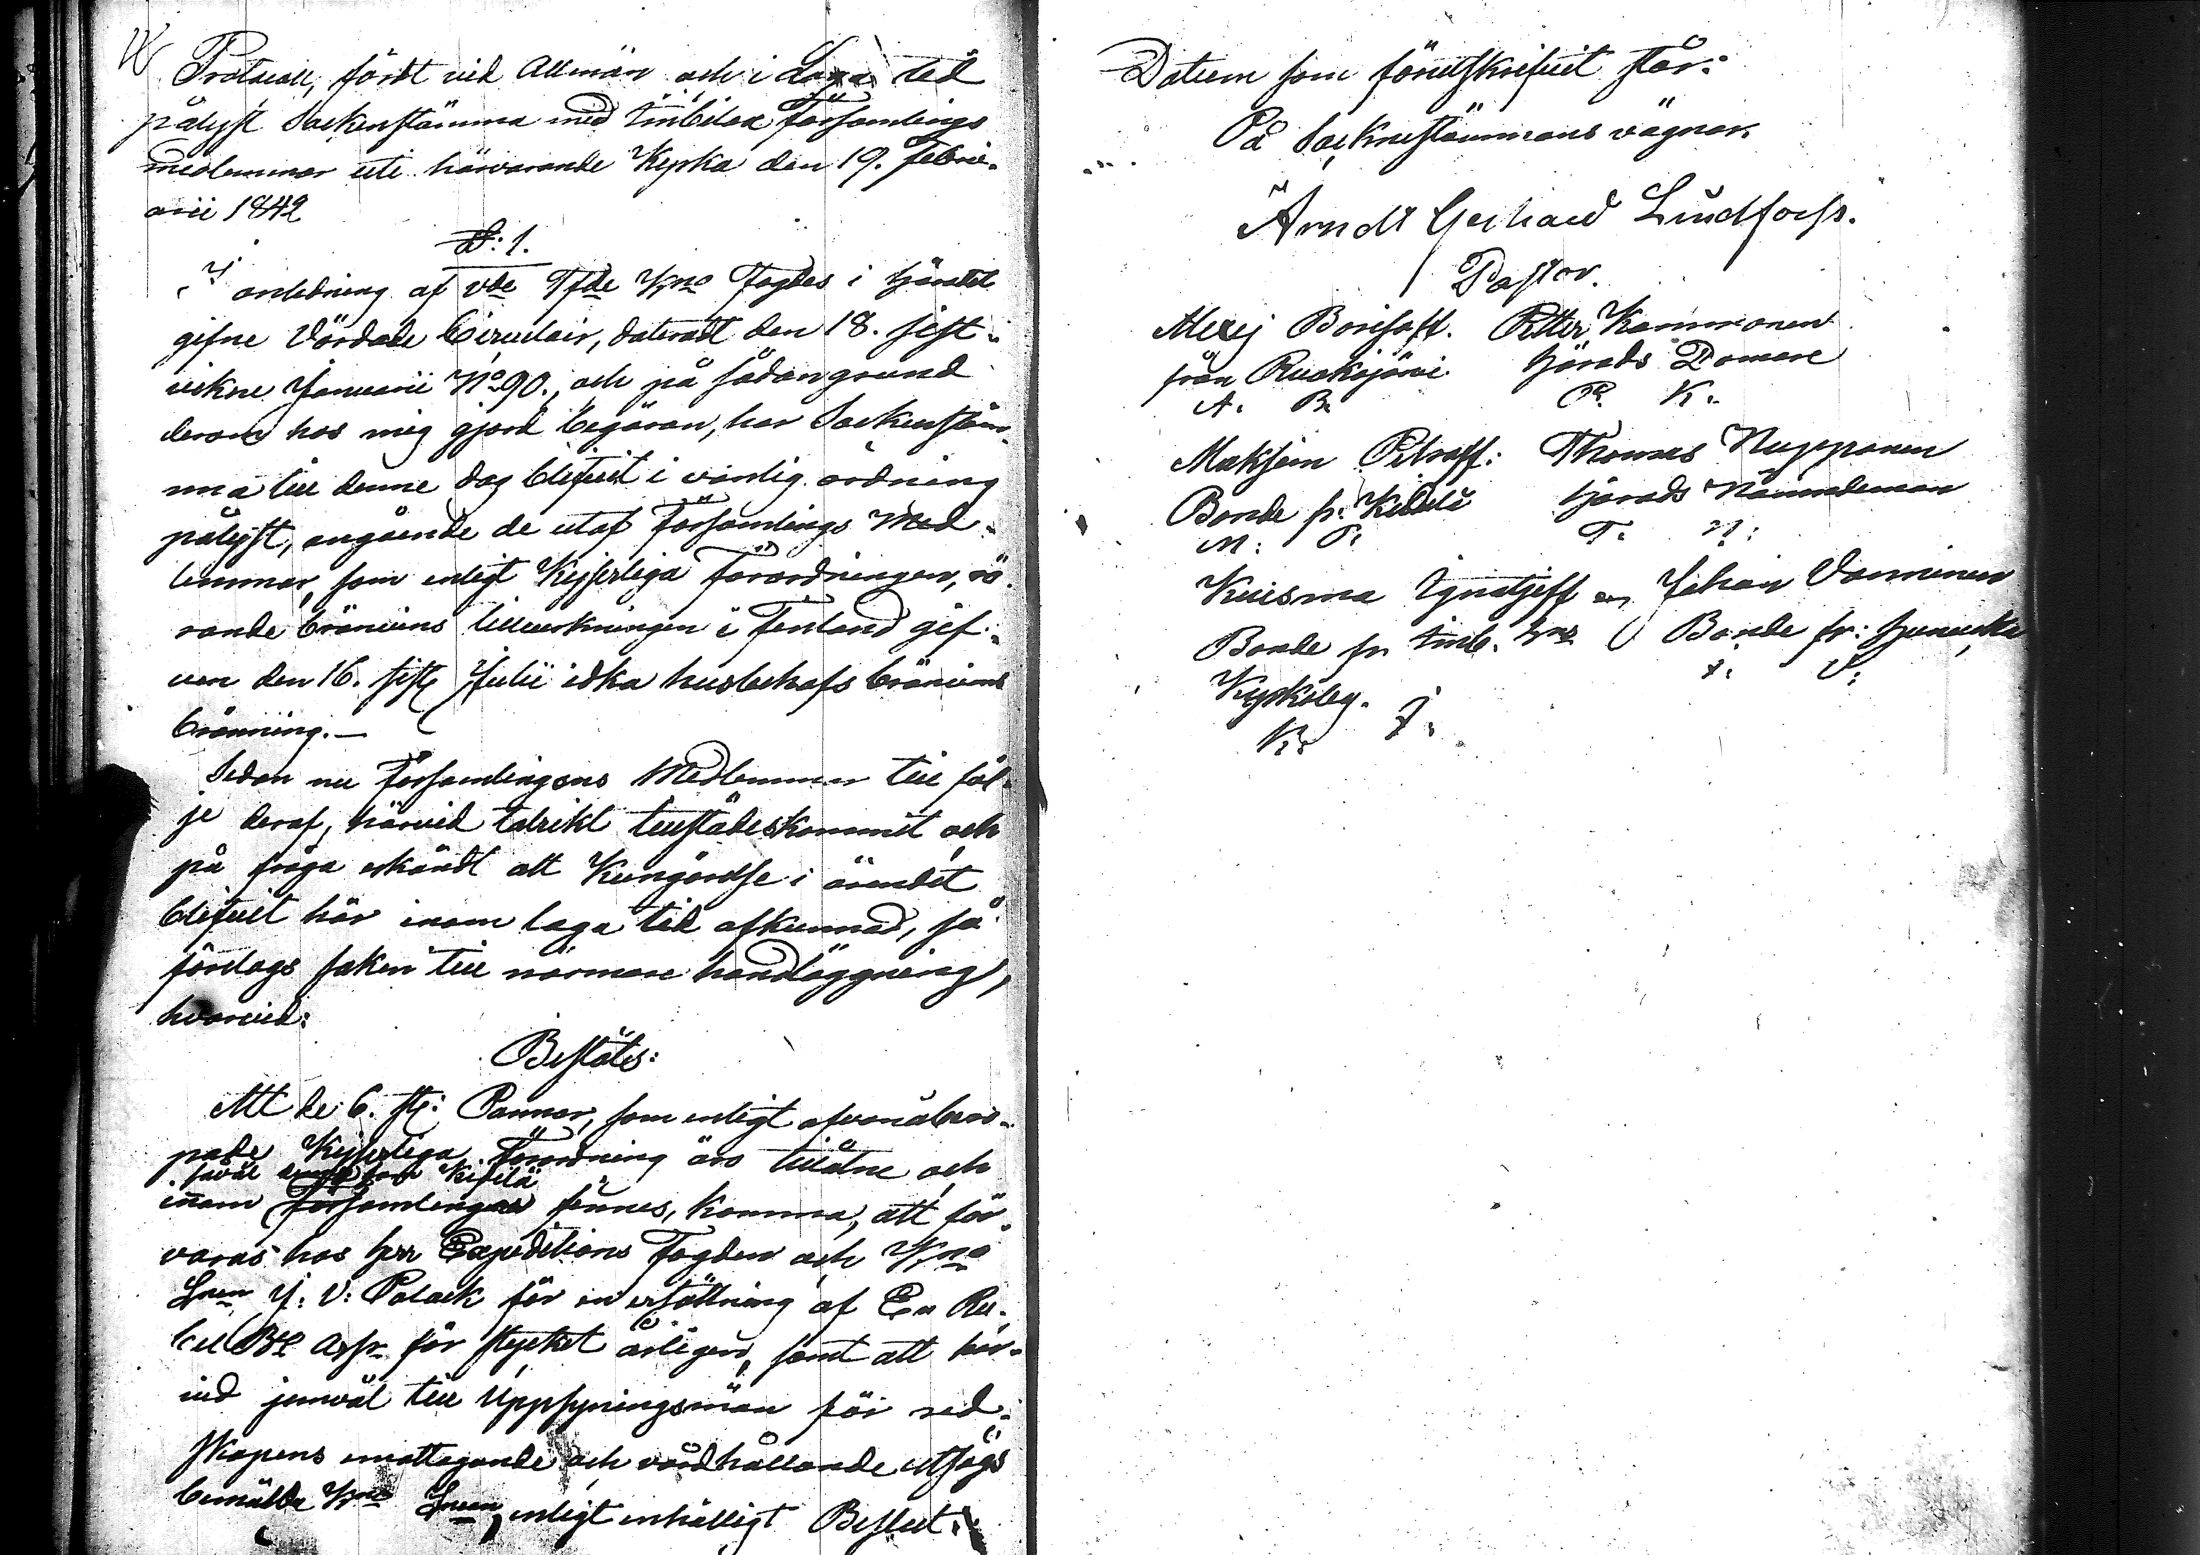 Protocoll, fördt vid Allmän och i Laga tid
pålyst Sockenstämma med Imbilax Församlings
medlemmar uti härvarande Kyrka den 19. Febru-
arii 1842
§: 1.
I anledning af vde Tfde Kno Fogdes i Häradet
gifne Vördade Circulair, dateradt den 18. sist-
vekne Januarii No 90., och på sådan grund
derom hos mig gjord begäran, har Sockenstäm-
ma till denne dag blifvit i vanlig ordning
pålyst, angående de utaf Församlings Med-
lemmar, som enligt Kejserliga Förordningen, rö-
rande bränvins tillverkningen i Finland gif-
ven den 16. sistl Julii idka husbehofs bränvins
bränning.—
Sedan nu Församlingens Medlemmar till föl-
je deraf, härvid talrikt tillstädeskommit, och
på fråga erkändt att Kungörelse i ärendet
blifvit här inom laga tid afkunnad, så
företogs saken till närmare handläggning,
hvarvid:
Beslöts:
Att de 6. st: Pannor, som enligt ofvanåbero-
pade Kejserliga Förordning äro tillåtne, och
såväl som Kitelä
inom Församlingen finnes, komma, att för-
varas hos Herr Expeditions Fogden och Kno
Lnen J: V: Polack för en ersättning af En Ru-
bel Bco Ass. för stycket årligen, samt att här-
vid jemväl till Uppsyningsman för red-
skapens emottagande och vårdhållande utsågs
bemälde Kno Lnen, enligt enhälligt Beslut.
Datum som föruthskrifvit står:
På Socknestämmans vägnar.
Arndt Gerhard Lindforss.
Pastor.
Alexej Borisoff. Petter Kammonen
från Ruokojärvi Härads Domare
A. B. P. K.
Maksim Petroff: Thomas Nupponen
Bonde fr: Kitelä Härads Nämndeman
M: P: T: N:
Kuisma Ignatjeff Johan Vanninen
Bonde fr Imb. Bonde fr: Hunukka
I: V:
Kyrkoby.
K: J: